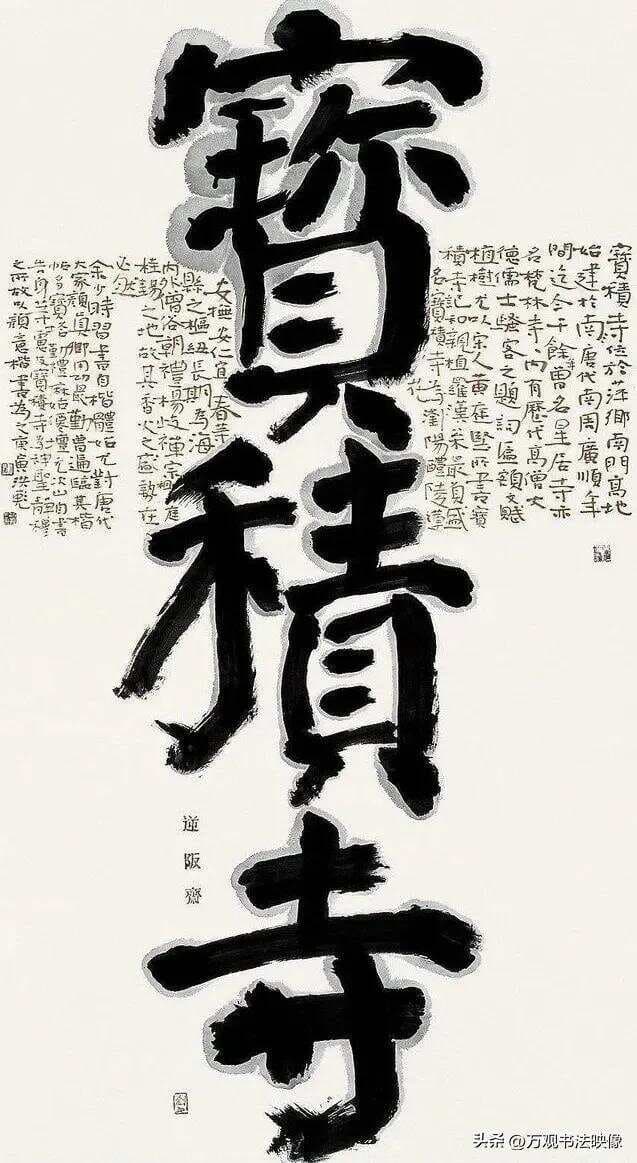 寶積寺
寶積寺位於萍鄉南門高地
始建於南唐代南周廣順年
間迄今千餘曾名星居寺亦
名梵林寺內有歷代高僧大
德儒士騷客之題詞匾額文賦
植樹尤以宋人黃庭堅所書寶
積寺記和親植羅漢菜最負盛
名寶積寺為瀏陽醴陵
安仁宜春等
縣之樞紐長期為海
內外僧俗朝禮楊岐禪宗祖庭
桂錫之地故其香火之盛敦在
必然
余少時習書自楷體始尤對唐代
大家顏真卿用功最勤曾遍臨其楷
帖多寶塔麻姑仙壇元次山自書
告身等寶積寺
之所故以顏意楷書為之庚寅洪亮
逆阪齋
头条 @万观书法映像